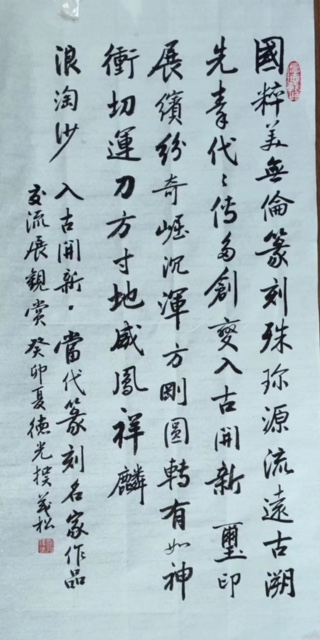 國粹美無倫篆刻殊珍源流遠古溯
先秦代々傳多創變入古開新璽印
展繽紛奇崛沉渾方剛圓轉有如神
衝切運刀方寸地威鳳祥麟
浪淘沙 入古開新·當代篆刻名家作品
交流展觀賞 癸卯夏德光撰